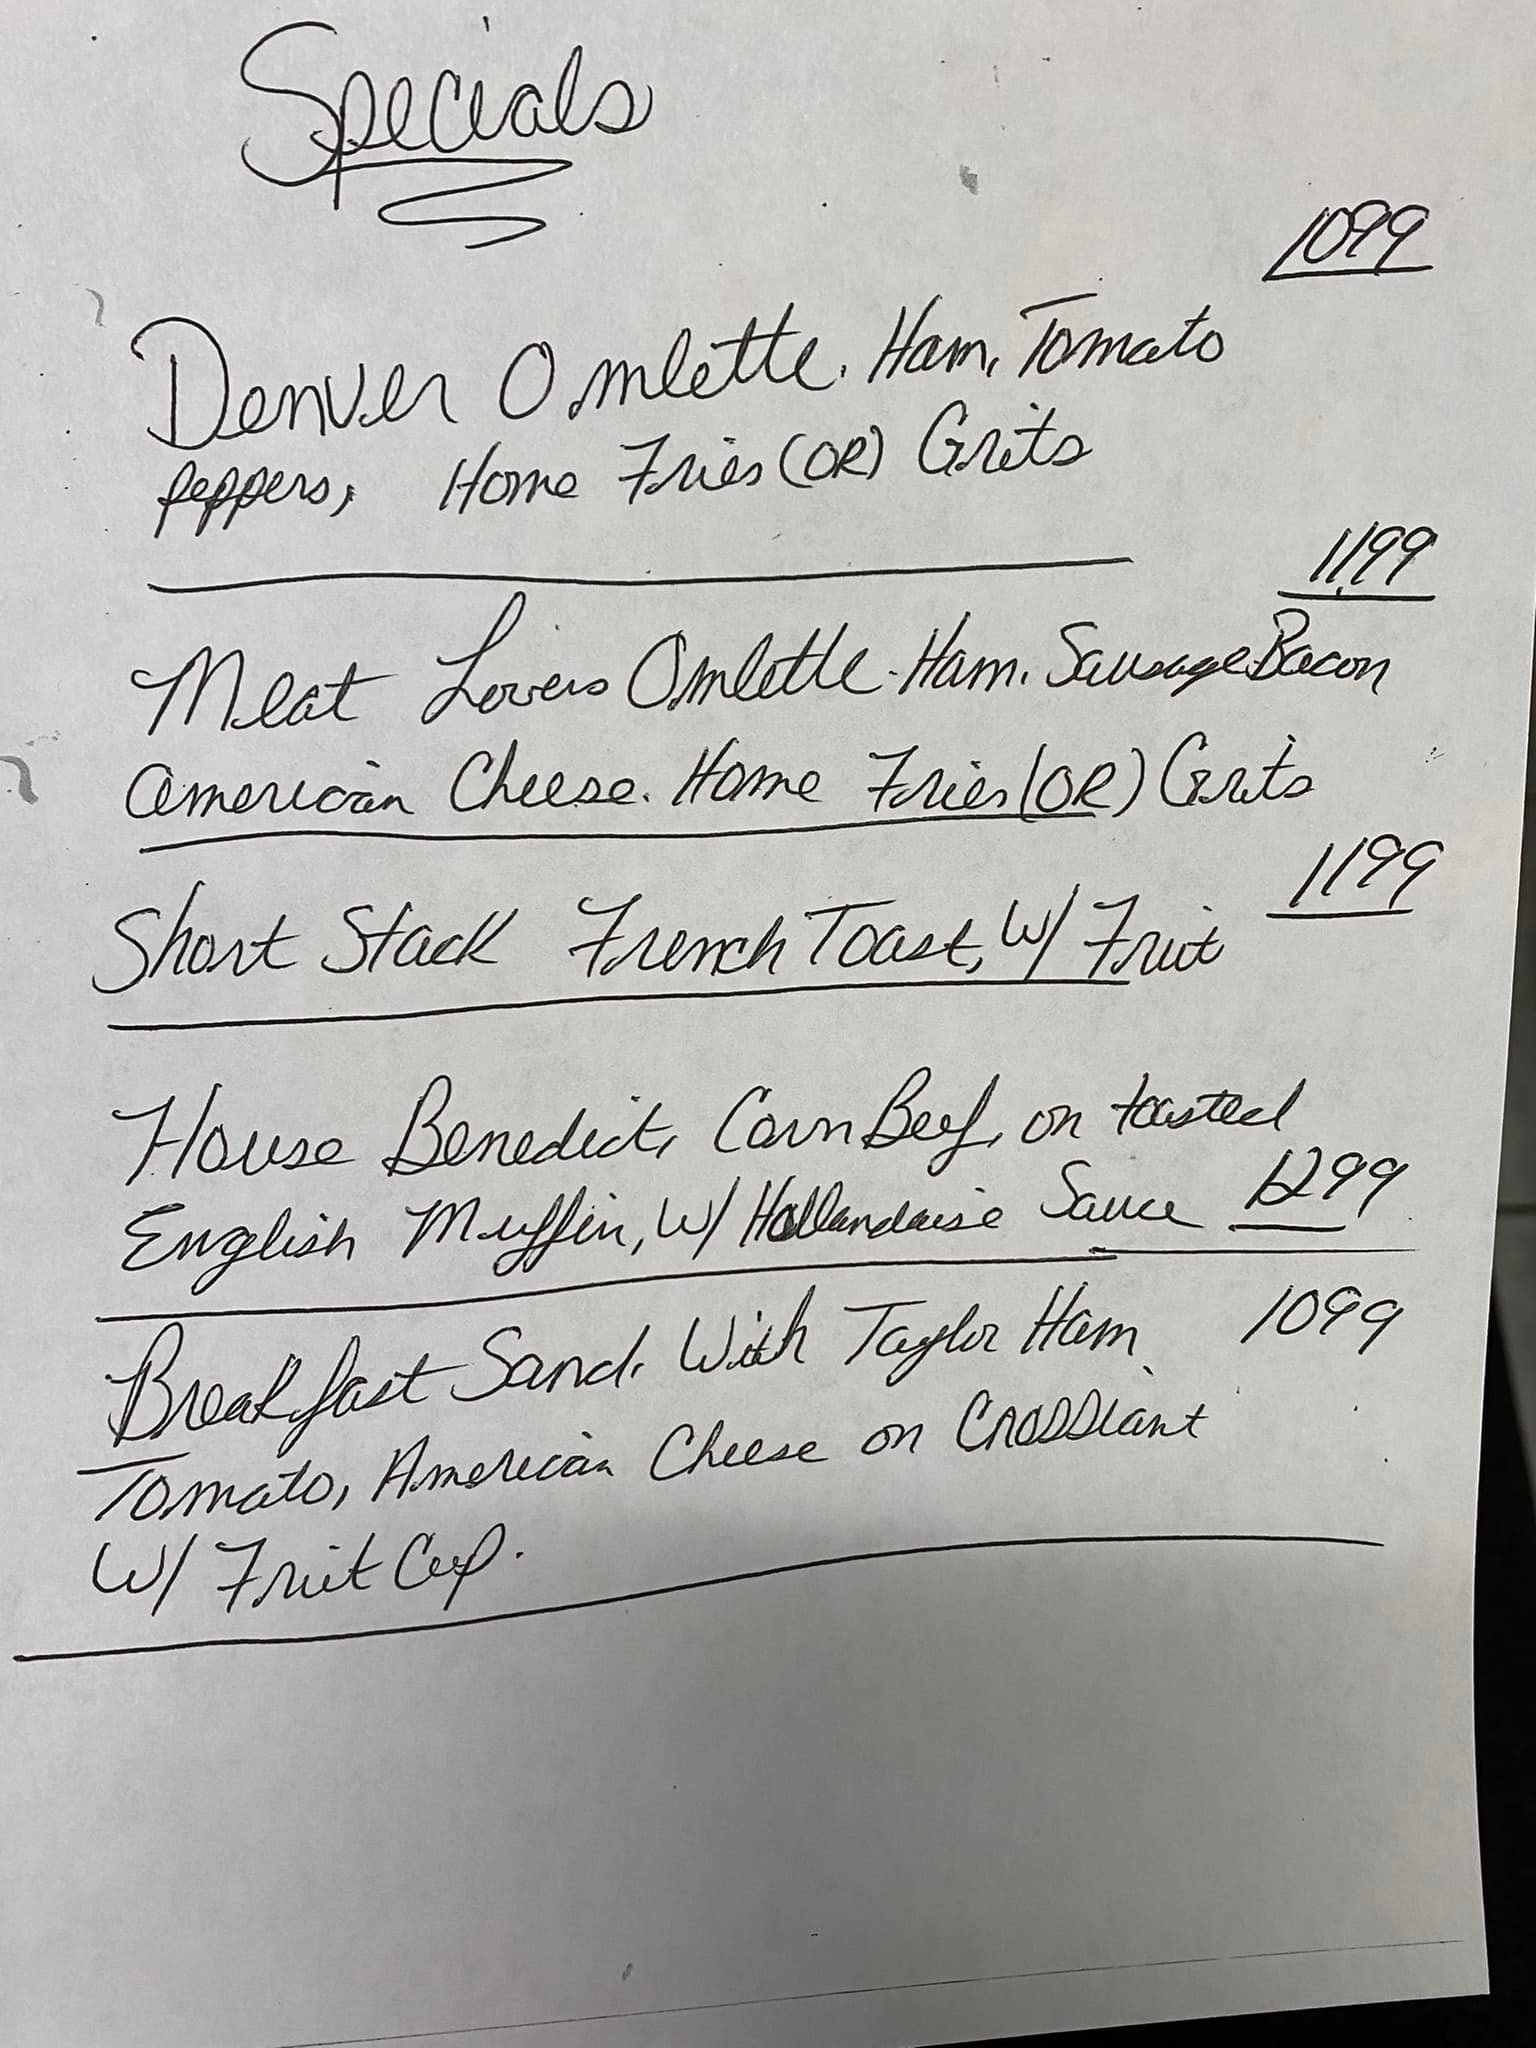 Specials
1099
Denver Omlette. Ham, Tomato
peppers, Home Fries (OR) Grits
11.99
Meat Lovers Omlette. Ham. Sausage Bacon
American Cheese. Home Fries (OR) Grits
1199
Short Stack French Toast, W/ Fruit
House Benedict, Corn Beef, on toasted
English Muffin, W/ Hollandaise Sauce 1299
Breakfast Sand. With Taylor Ham 1099
Tomato, American Cheese on Crossiant
W/ Fruit Cup.